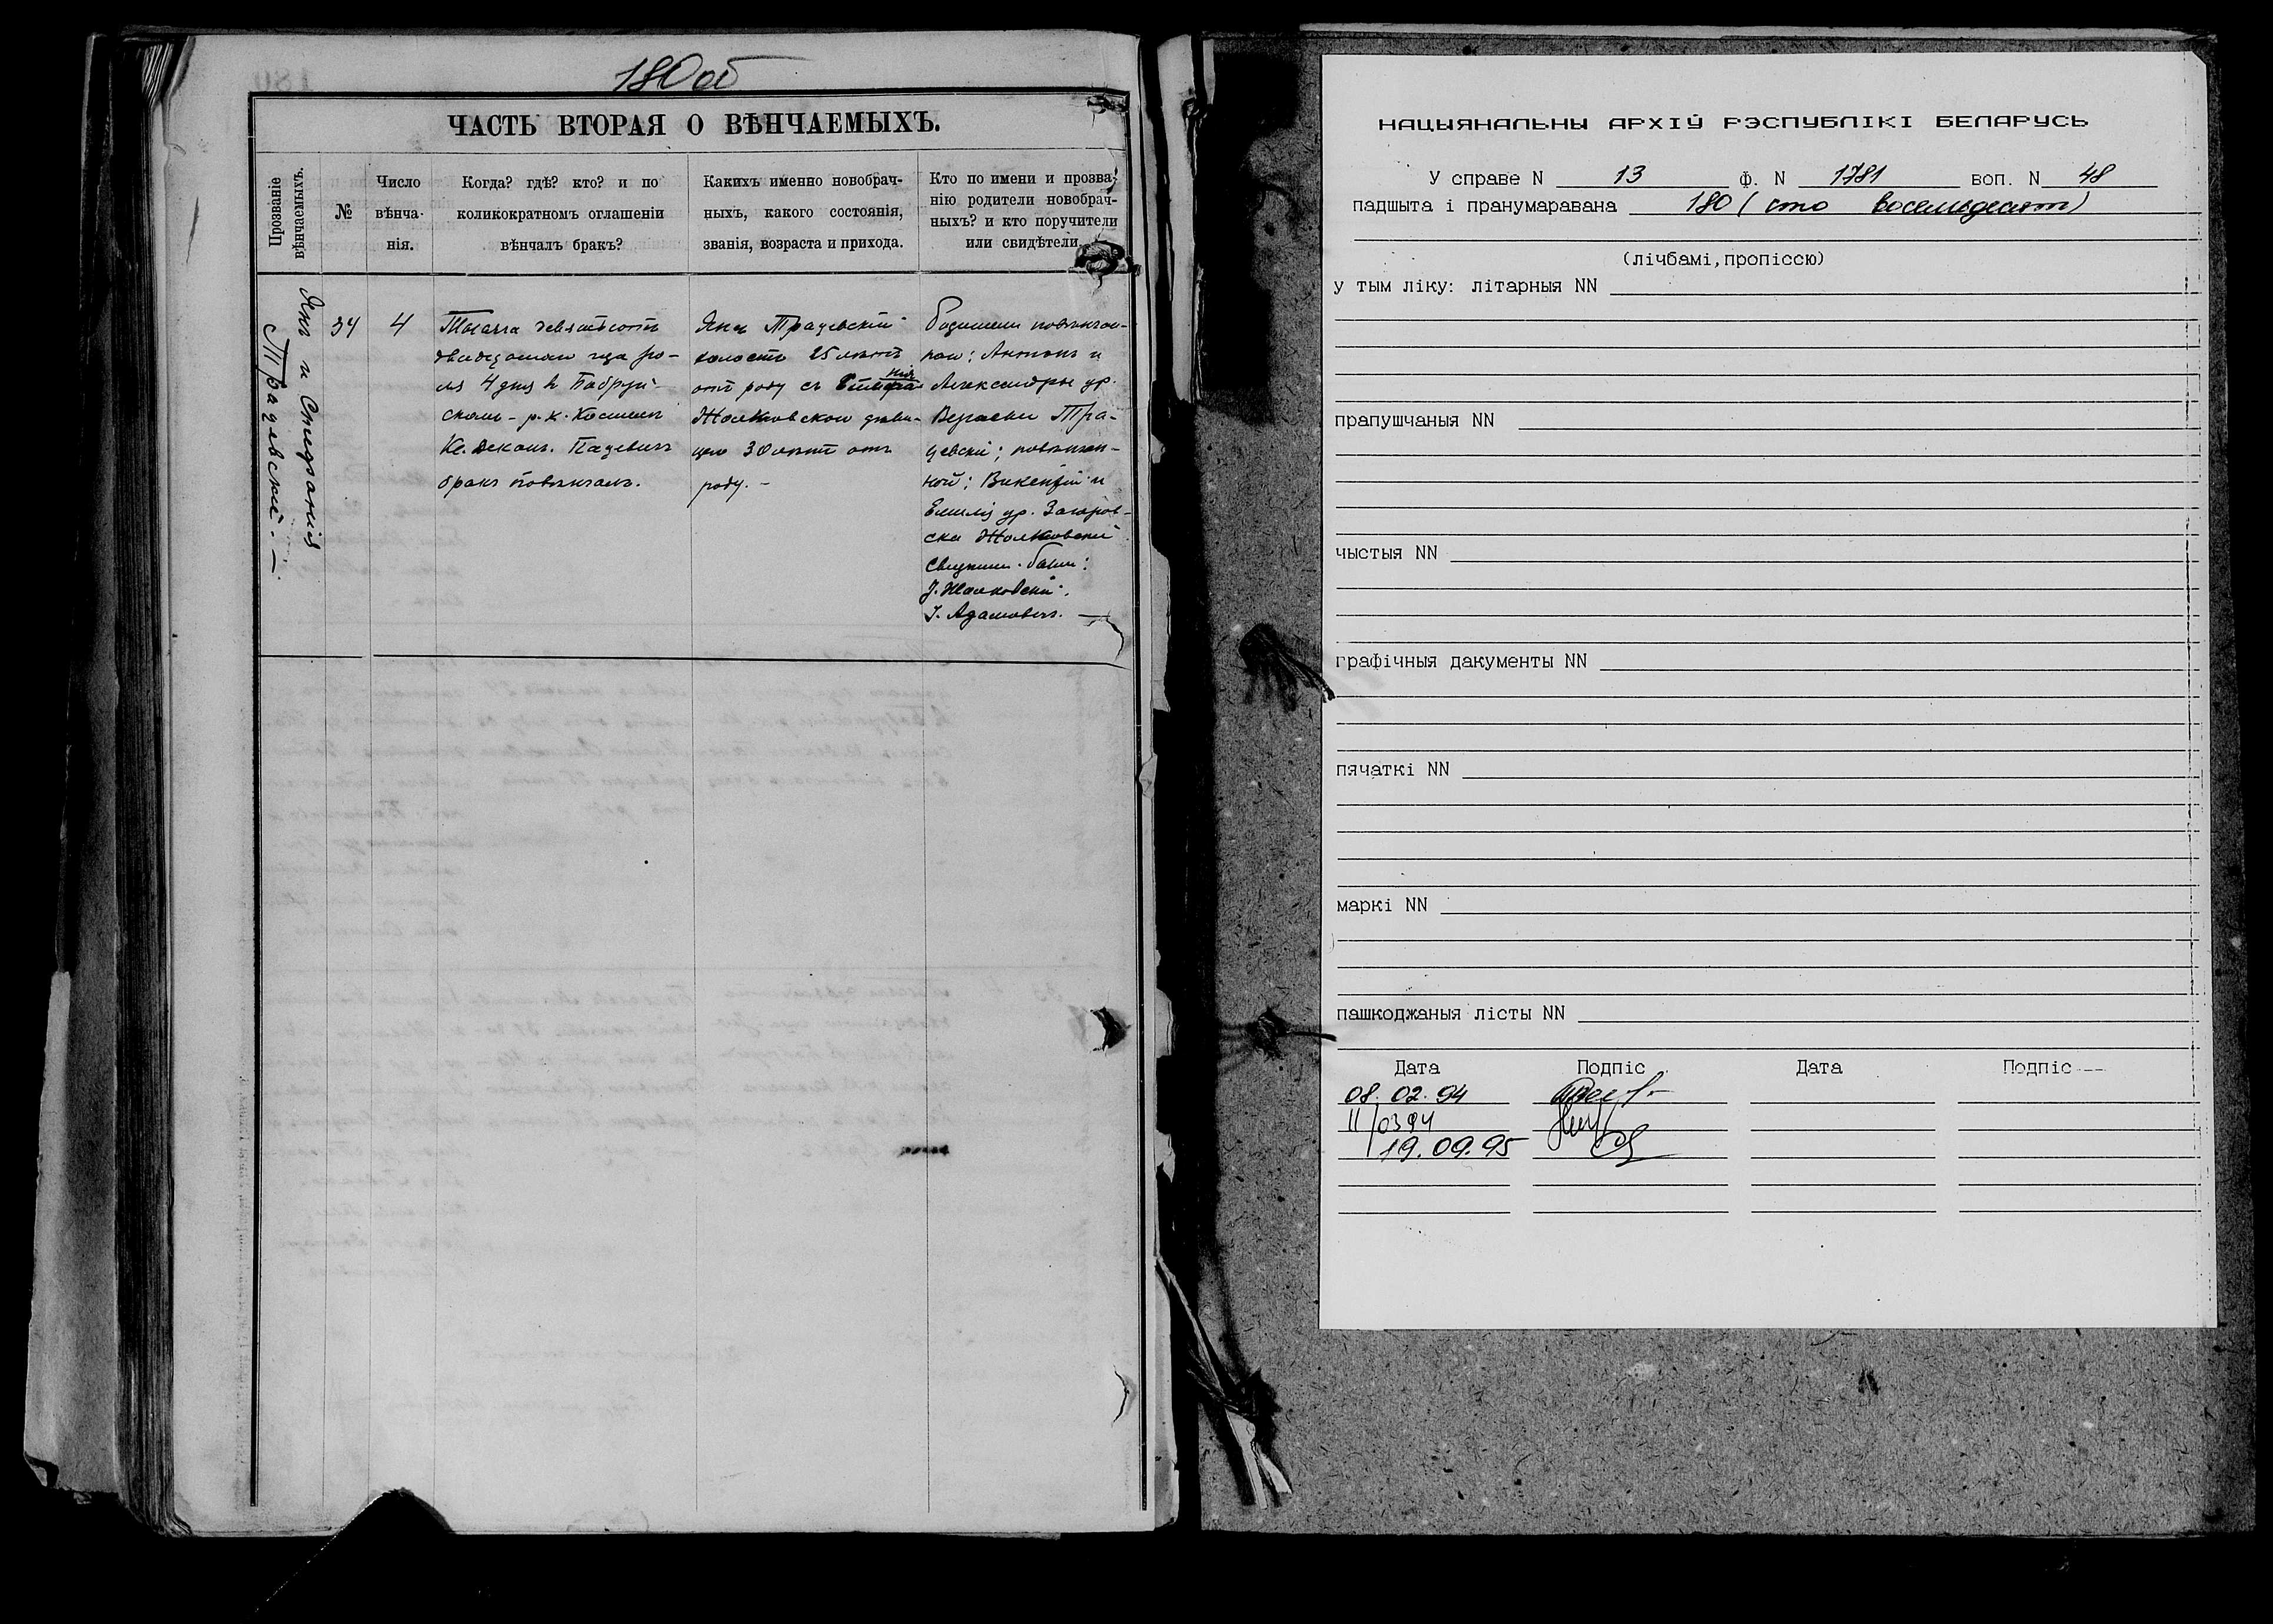 180 об
ЧАСТЬ ВТОРАЯ О ВѢНЧАЕМЫХЪ.
Прозваніе
вѣнчаемыхъ.
№
Число
вѣнча-
нія.
Когда? гдѣ? кто? и по
коликократномъ оглашеніи
вѣнчалъ бракъ?
Какихъ именно новобрач-
ныхъ, какого состоянія,
званія, возраста и прихода.
Кто по имени и прозва-
нію родители новобрач-
ныхъ? и кто поручители
или свидѣтели.
Янъ и
34
4
Тысяча девятьсотъ
года ію-
ля 4 дня в Бобруй-
скомъ р. к. Костелѣ
Кс. Декан. Пацевичъ
бракъ повѣнчалъ.
Янъ
холостъ 25 лѣтъ
отъ роду съ
Жолковскою дѣви-
цею 30 лѣтъ отъ
роду. -
Антонъ и
Александры ур.
Тра-
цевскій; повѣнчан-
ной: Викентій и
Емилія ур.
ска Жолковскій
J. Жолковскій.
J. Адамовичъ. —
НАЦЫЯНАЛЬНЫ АРХІЎ РЭСПУБЛІКІ БЕЛАРУСЬ
У справе N 13 Ф. N 1781 воп. N 48
падшыта і пранумаравана 180 ( сто восемьдесят)
(лічбамі,пропіссю)
у тым ліку: літарныя NN
прапушчаныя NN
чыстыя NN
графічныя дакументы NN
пячаткі NN
маркі NN
пашкоджаныя лісты NN
Дата Подпіс Дата Подпіс
08. 02. 94
11/0394
19. 09. 95